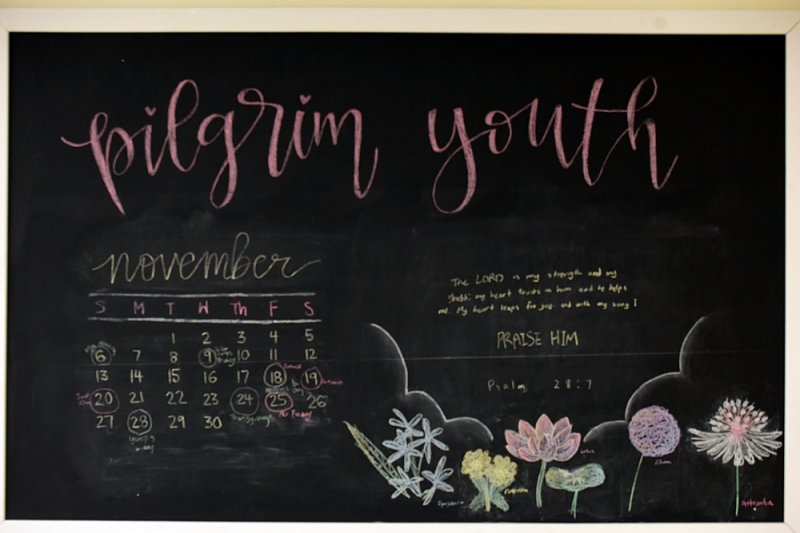 pilgrim youth
november
S M T W Th F S
1 2 3 4 5
6 7 8 9 10 11 12
13 14 15 16 17 18 19
20 21 22 23 24 25 26
27 28 29 30
Thanksgiving
No Friday
The LORD is my strength and my
shield: my heart trusts in him and he helps
me. My heart leaps for joy, and with my song I
PRAISE HIM
Psalm 28:7
Lotus
Allium